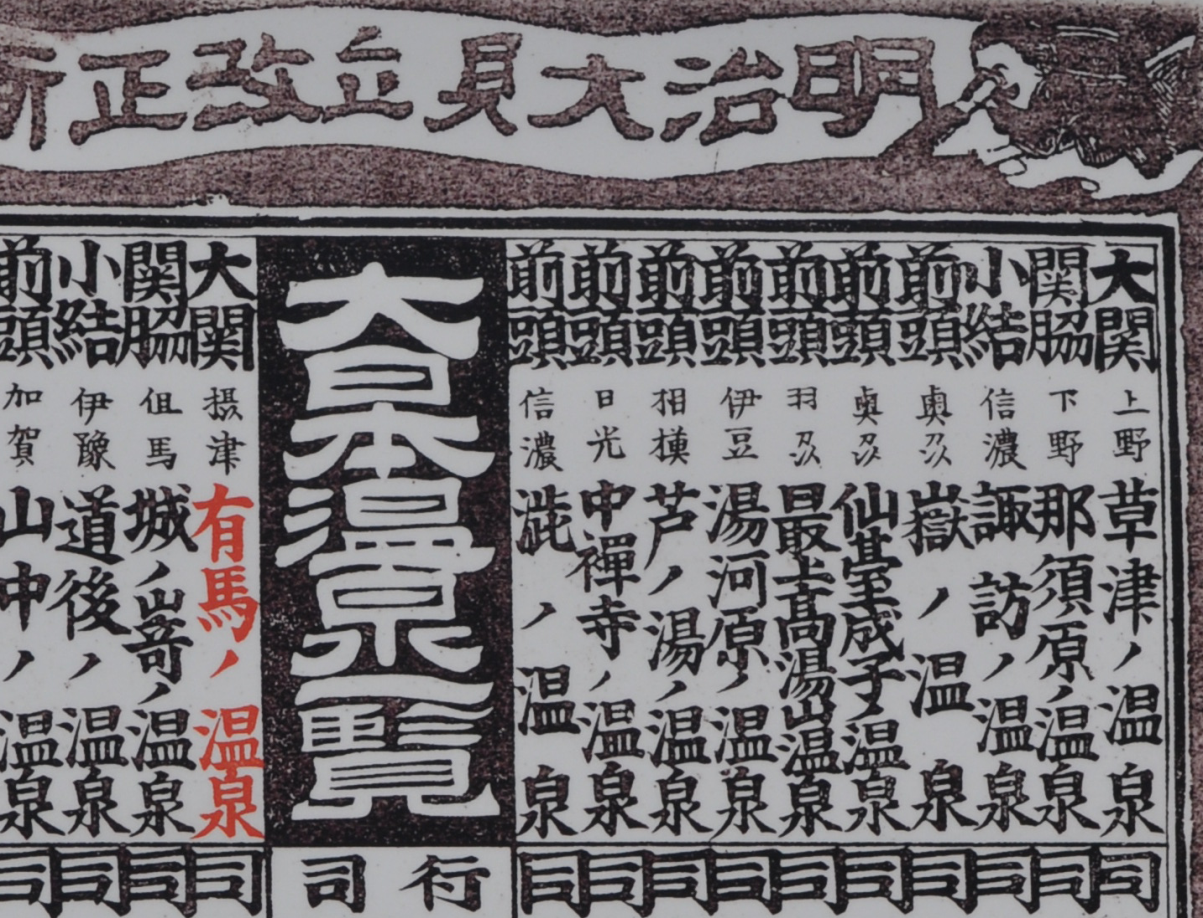 明治大見立改正新
大関 上野 草津ノ温泉
関脇 下野 那須原ノ温泉
小結 信濃 諏訪ノ温泉
前頭 奥刕 嶽ノ温泉
前頭 奥刕 仙臺成子ノ温泉
前頭 羽刕 最上高湯ノ温泉
前頭 伊豆 湯河原ノ温泉
前頭 相模 芦ノ湯ノ温泉
前頭 日光 中禪寺ノ温泉
前頭 信濃 澁ノ温泉
大日本温泉一覧
大関 摂津 有馬ノ温泉
関脇 伹馬 城ノ崎ノ温泉
小結 伊豫 道後ノ温泉
前頭 加賀 山中ノ温泉
同 同 同 同 同 同 同 同 同 同
行司
同 同 同 同